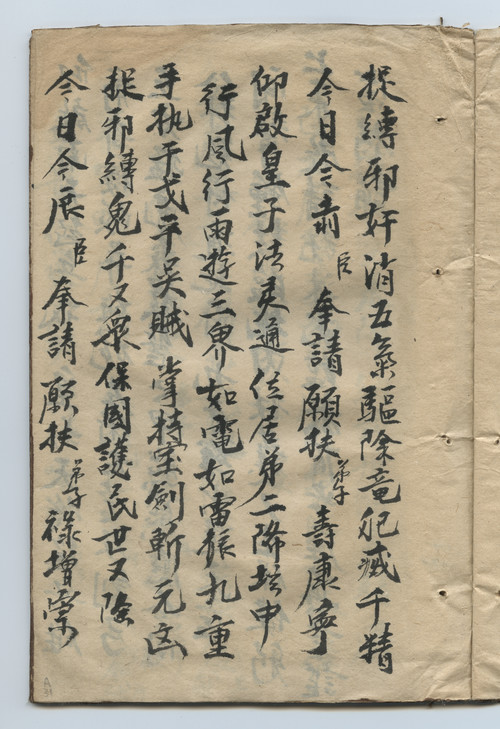 捉縛邪奸消五氣驅除竜妃滅千精
今日今肅臣奉請願扶弟子壽康寧
仰啟皇子法灵通位居弟二降坛中
行風行雨遊三界如電如雷振九重
手执干戈平吳賊掌持宝劍斬元凶
捉邪縛鬼千又衆保國護民世又隆
今日今展臣奉請願扶弟子祿增崇